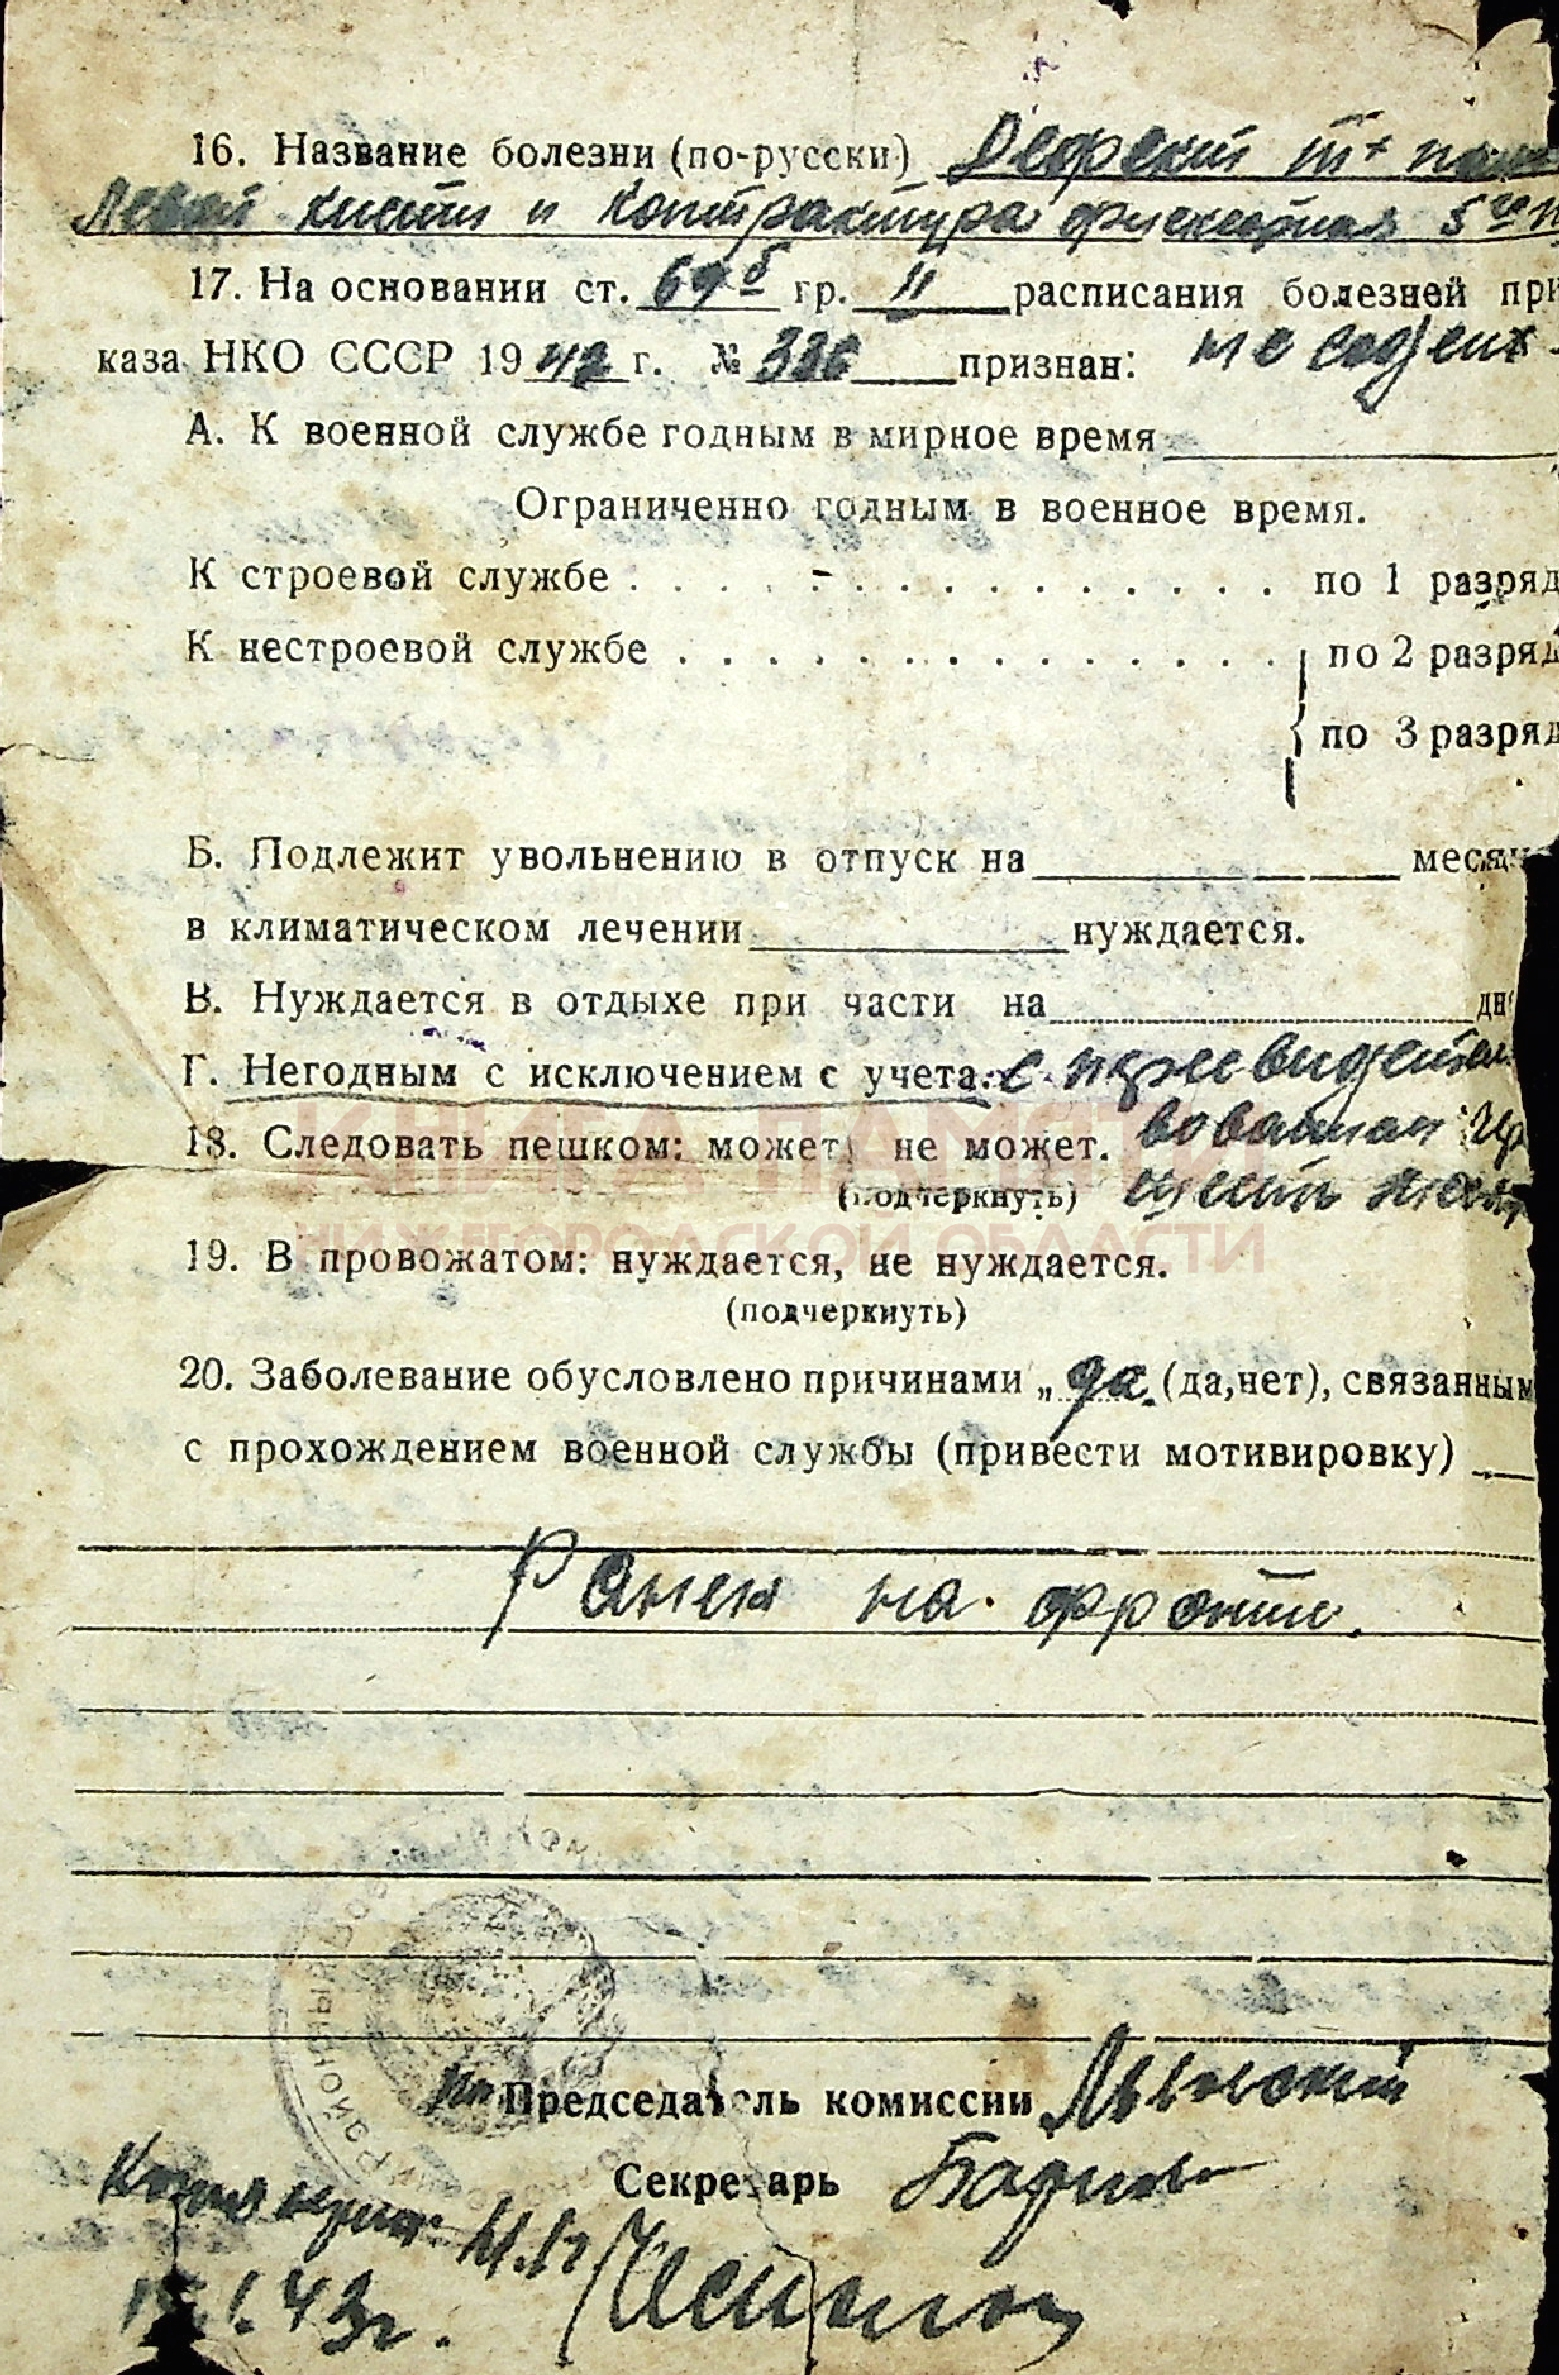 16. Название болезни (по-русски) Дефект III
Левой кисти и контрактура 5
17. На основании ст. 69 б гр. II расписания болезней при
каза НКО СССР 1942 г. № 336 признан:
А. К военной службе годным в мирное время
Ограниченно годным в военное время.
К строевой службе . . . . . . . . . . . . . . . по 1 разряд
К нестроевой службе . . . . . . . . . . . . . . по 2 разряд
по 3 разряд
Б. Подлежит увольнению в отпуск на месяц
в климатическом лечении нуждается.
В. Нуждается в отдыхе при части на дн
Г. Негодным с исключением с учета. с
КНИГА ПАМЯТИ
18. Следовать пешком: может, не может.
(подчеркнуть) шесть
НИЖЕГОРОДСКОЙ ОБЛАСТИ
19. В провожатом: нуждается, не нуждается.
(подчеркнуть)
20. Заболевание обусловлено причинами „да. (да, нет), связанным
с прохождением военной службы (привести мотивировку)
Ранен на фронте.
Председатель комиссии
Секретарь
43 г.